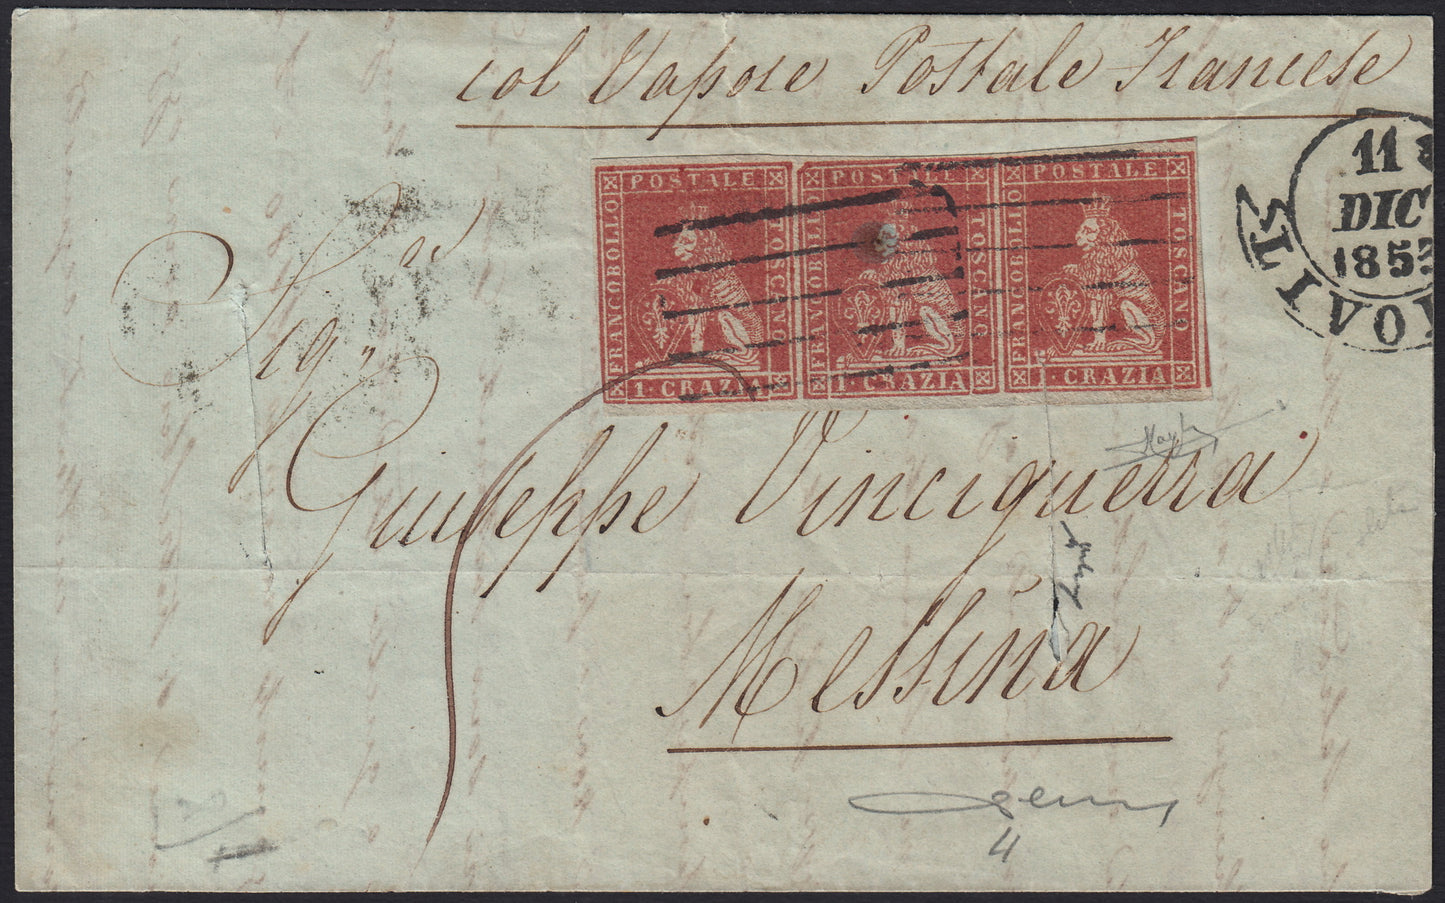 col Vapore Postale Francese
POSTALE POSTALE POSTALE
FRANCOBOLLO TOSCANO FRANCOBOLLO TOSCANO FRANCOBOLLO TOSCANO
1·CRAZIA 1·CRAZIA 1·CRAZIA
11
DIC
1853
Sig.r
Giuseppe Vinciguerra
Messina
4